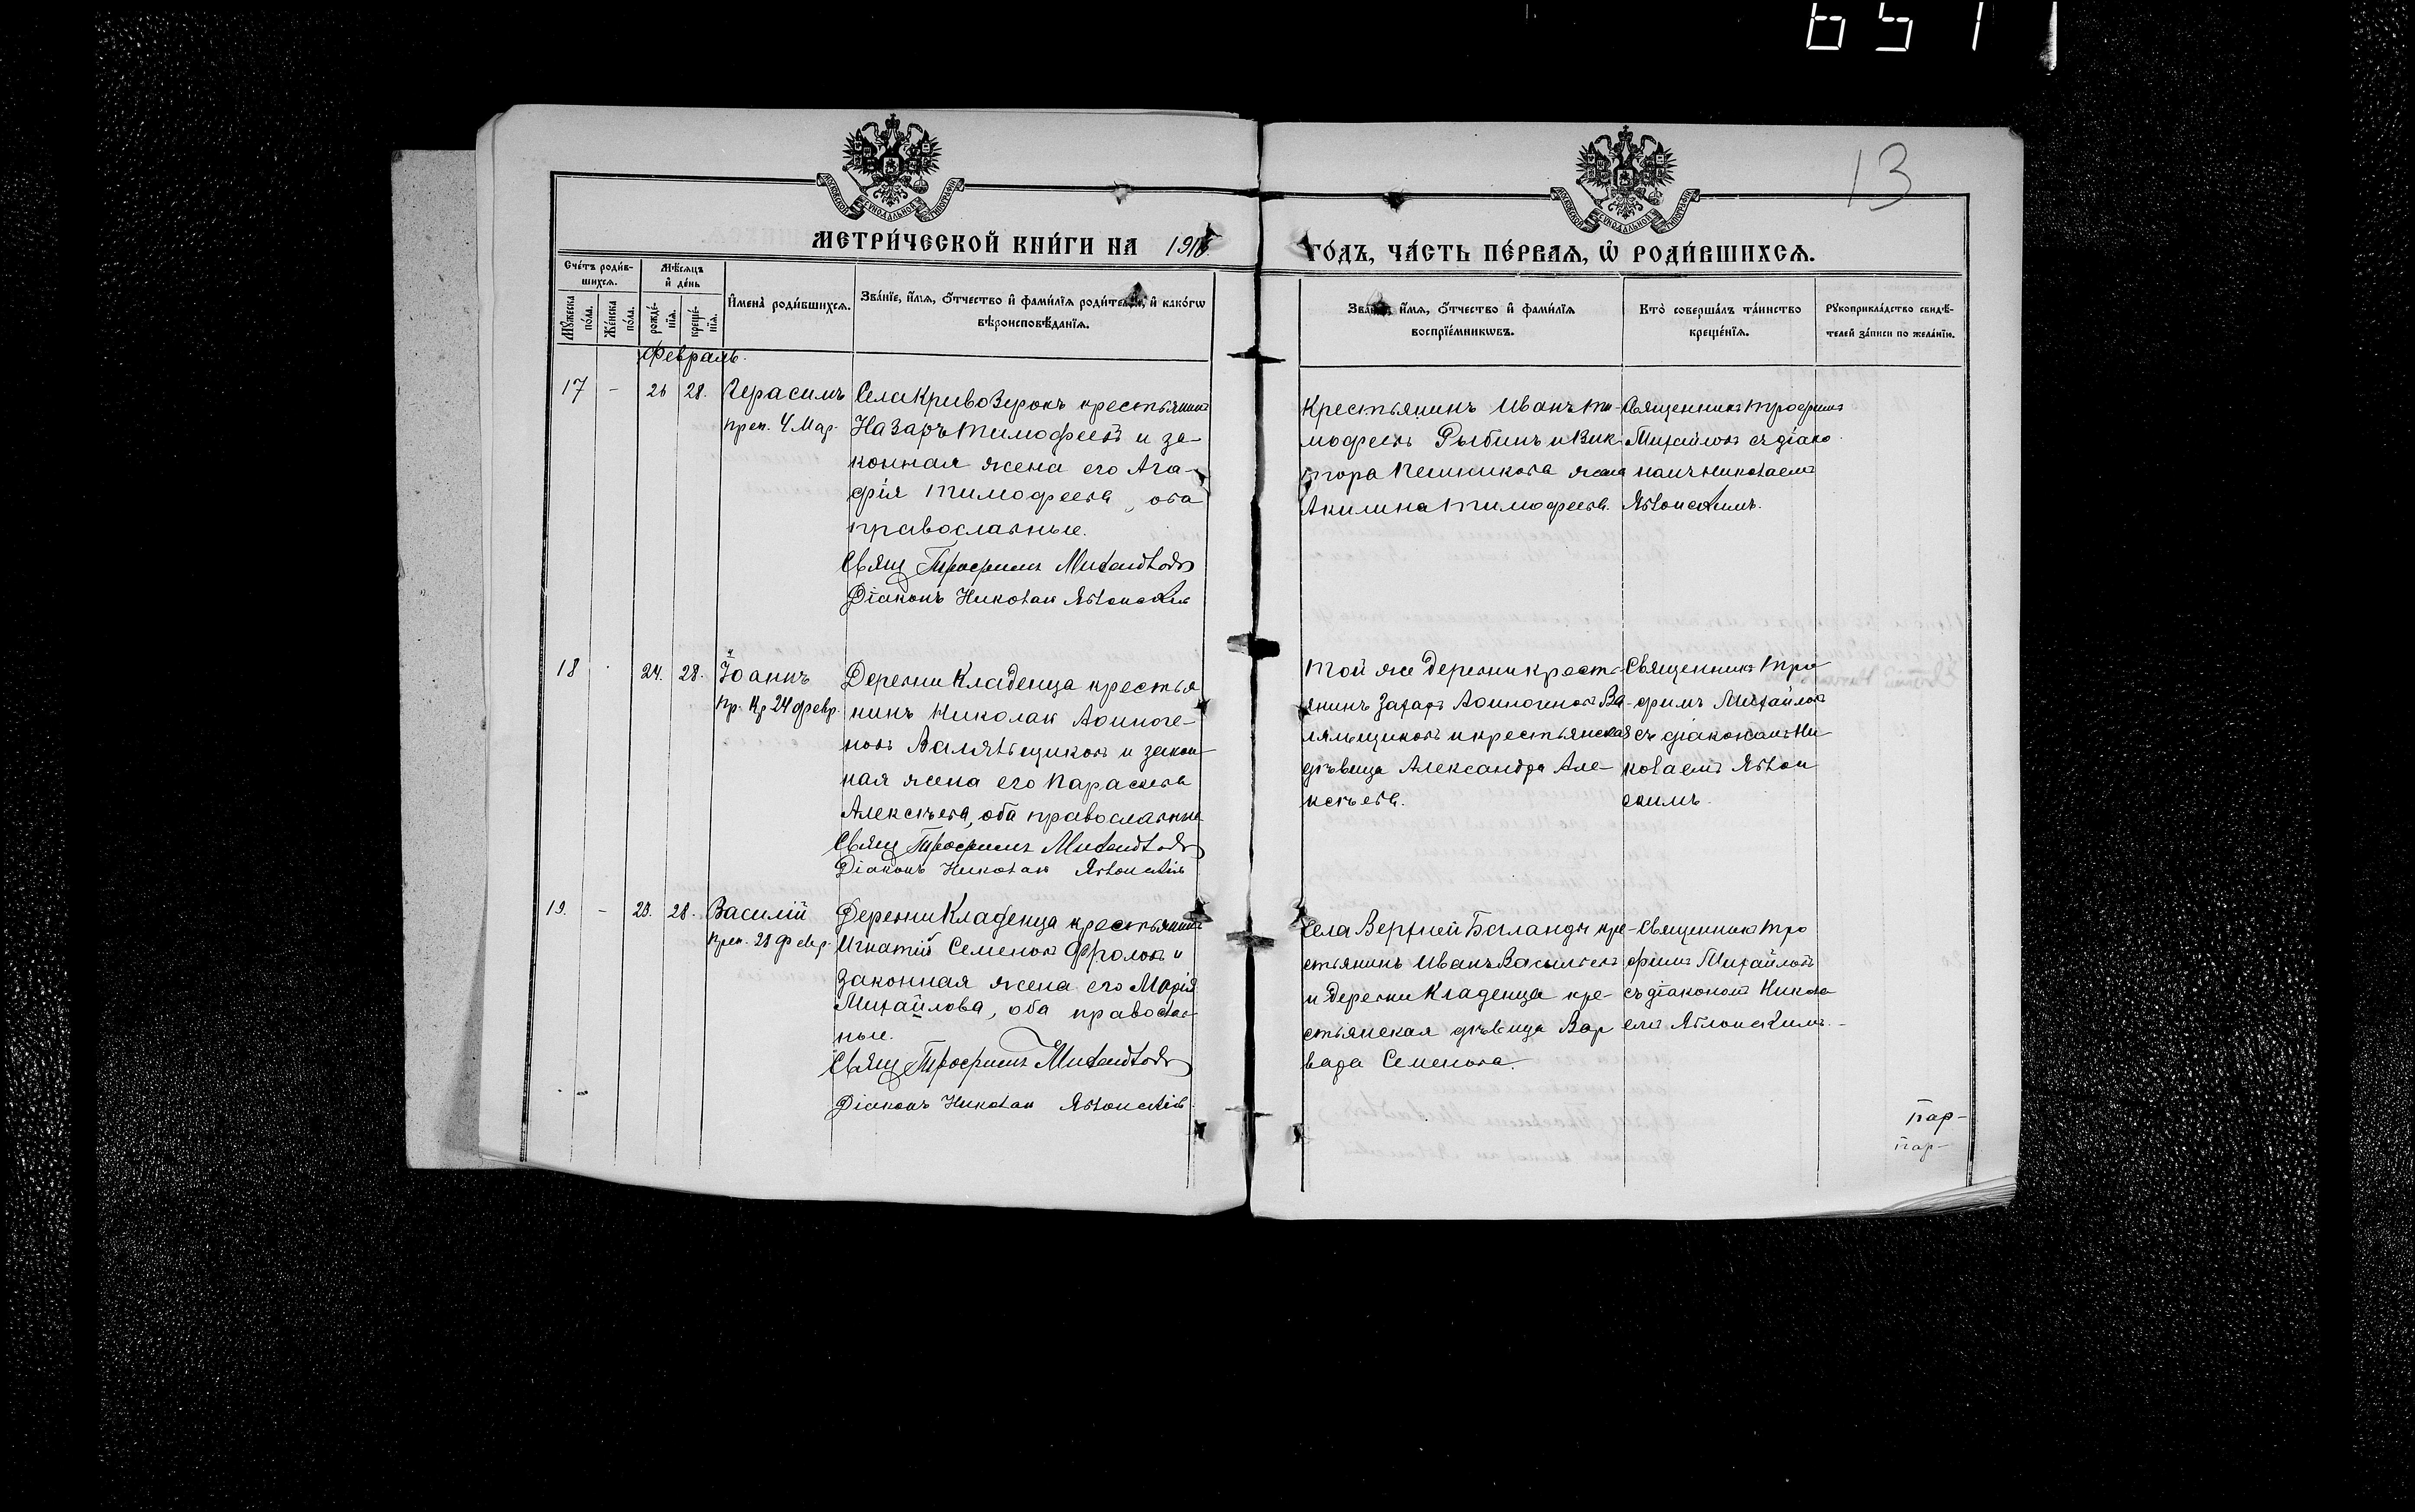 6511
13
МЕТРИ́ЧЕСКОЙ КНИ́ГИ НА 1916
ГО́ДЪ, ЧА́СТЬ ПЕ́РВАЯ, Ѡ҆ РОДИ́ВШИХСЯ.
Сче́тъ роди́в-
шихся.
Мѣ́сяцъ
и҆ де́нь
Мꙋ́жеска
по́ла.
Же́нска
по́ла.
рожде́-
нїѧ.
креще́-
нїѧ.
И҆мена̀ роди́вшихся.
Зва́нїе, и҆́мя, ѻ҆́тчество и҆ фами́лїя роди́телей, и҆ како́гѡ
вѣроисповѣ́данїя.
Зва́нїе, и҆́мя, ѻ҆́тчество и҆ фами́лїя
воспрїе́мникѡвъ.
Кто̀ соверша́лъ та́инство
креще́нїя.
Рꙋкоприкла́дство свидѣ́-
телей за́писи по жела́нїю.
Февраль.
17 - 26 28. Герасимъ
преп. 4 Мар.
Села Кривозерокъ крестьянинъ
Назаръ Тимофеевъ и за-
конная жена его Ага-
фія Тимофеева, оба
православные.
Свящ Трофимъ Михайловъ
Діаконъ Николай Яблонскій
Крестьянинъ Иванъ Ти-
мофеевъ Рыбинъ и Вик-
тора жена
Акилина Тимофеева.
Священникъ Трофимъ
Михайловъ съ діако-
номъ Николаемъ
Яблонскимъ.
18 24. 28. Іоаннъ
пр. Кр 24 февр.
Деревни Кладенца крестья
нинъ Николай Аѳиноге-
новъ Валяльщиковъ и закон-
ная жена его Параскева
Алексѣева, оба православные
Свящ Трофимъ Михайловъ
Діаконъ Николай Яблонскій
Той же деревни кресть-
янинъ Захаръ Аѳиногеновъ Ва-
ляльщиковъ и крестьянская
дѣвица Александра Але-
ксѣева.
Священникъ Тро
фимъ Михайловъ
съ діакономъ Ни
колаемъ Яблон
скимъ.
19. - 23. 28. Василій
преп. 28 февр.
Деревни Кладенца крестьянинъ
Игнатій Семеновъ Фроловъ и
законная жена его Марія
Михайлова, оба православ-
ные.
Свящ Трофимъ Михайловъ
Діаконъ Николай Яблонскій
Села Верхней Баланды кре-
стьянинъ Иванъ Васильевъ
и деревни Кладенца кре-
стьянская дѣвица Вар
вара Семенова.
Священникъ Тро
фимъ Михайловъ
съ діакономъ Никола
емъ Яблонскимъ.
Пар-
пар-